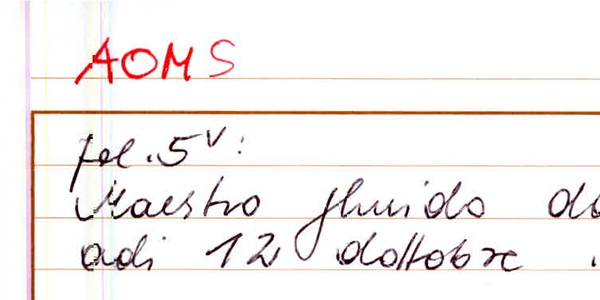 AOMS
fol. 5v:
Maestro Ghuido da
adi 12 dottobre